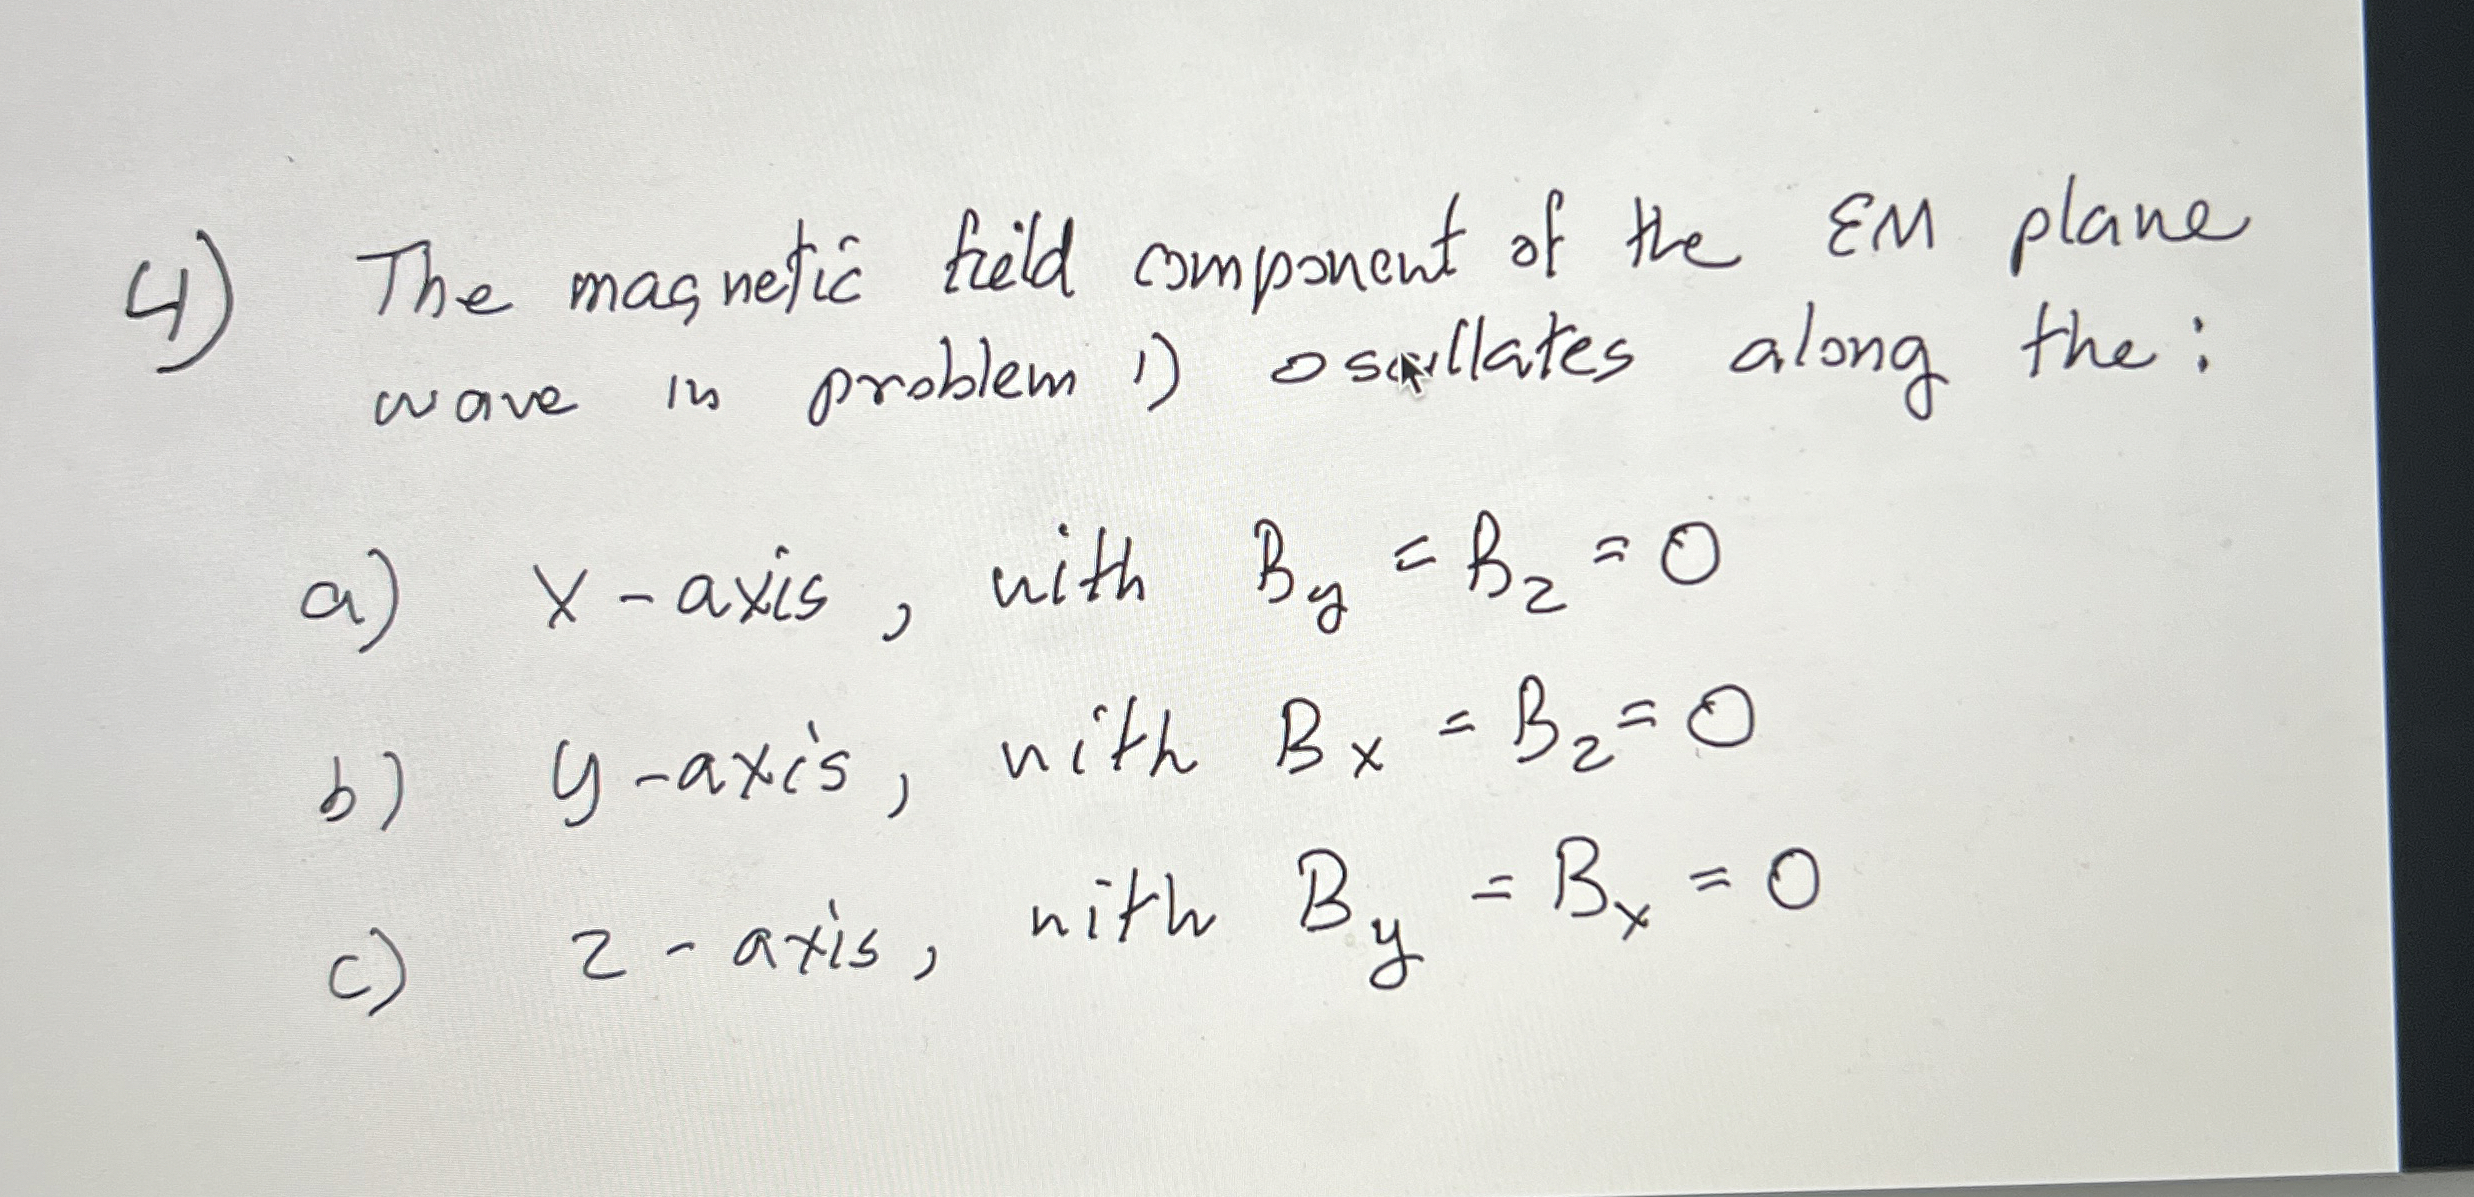 4) The magnetic field component of the EM plane
wave in problem 1) oscillates along the:
a) x-axis, with By = Bz = 0
b) y-axis, with Bx = Bz = 0
c) z-axis, with By = Bx = 0